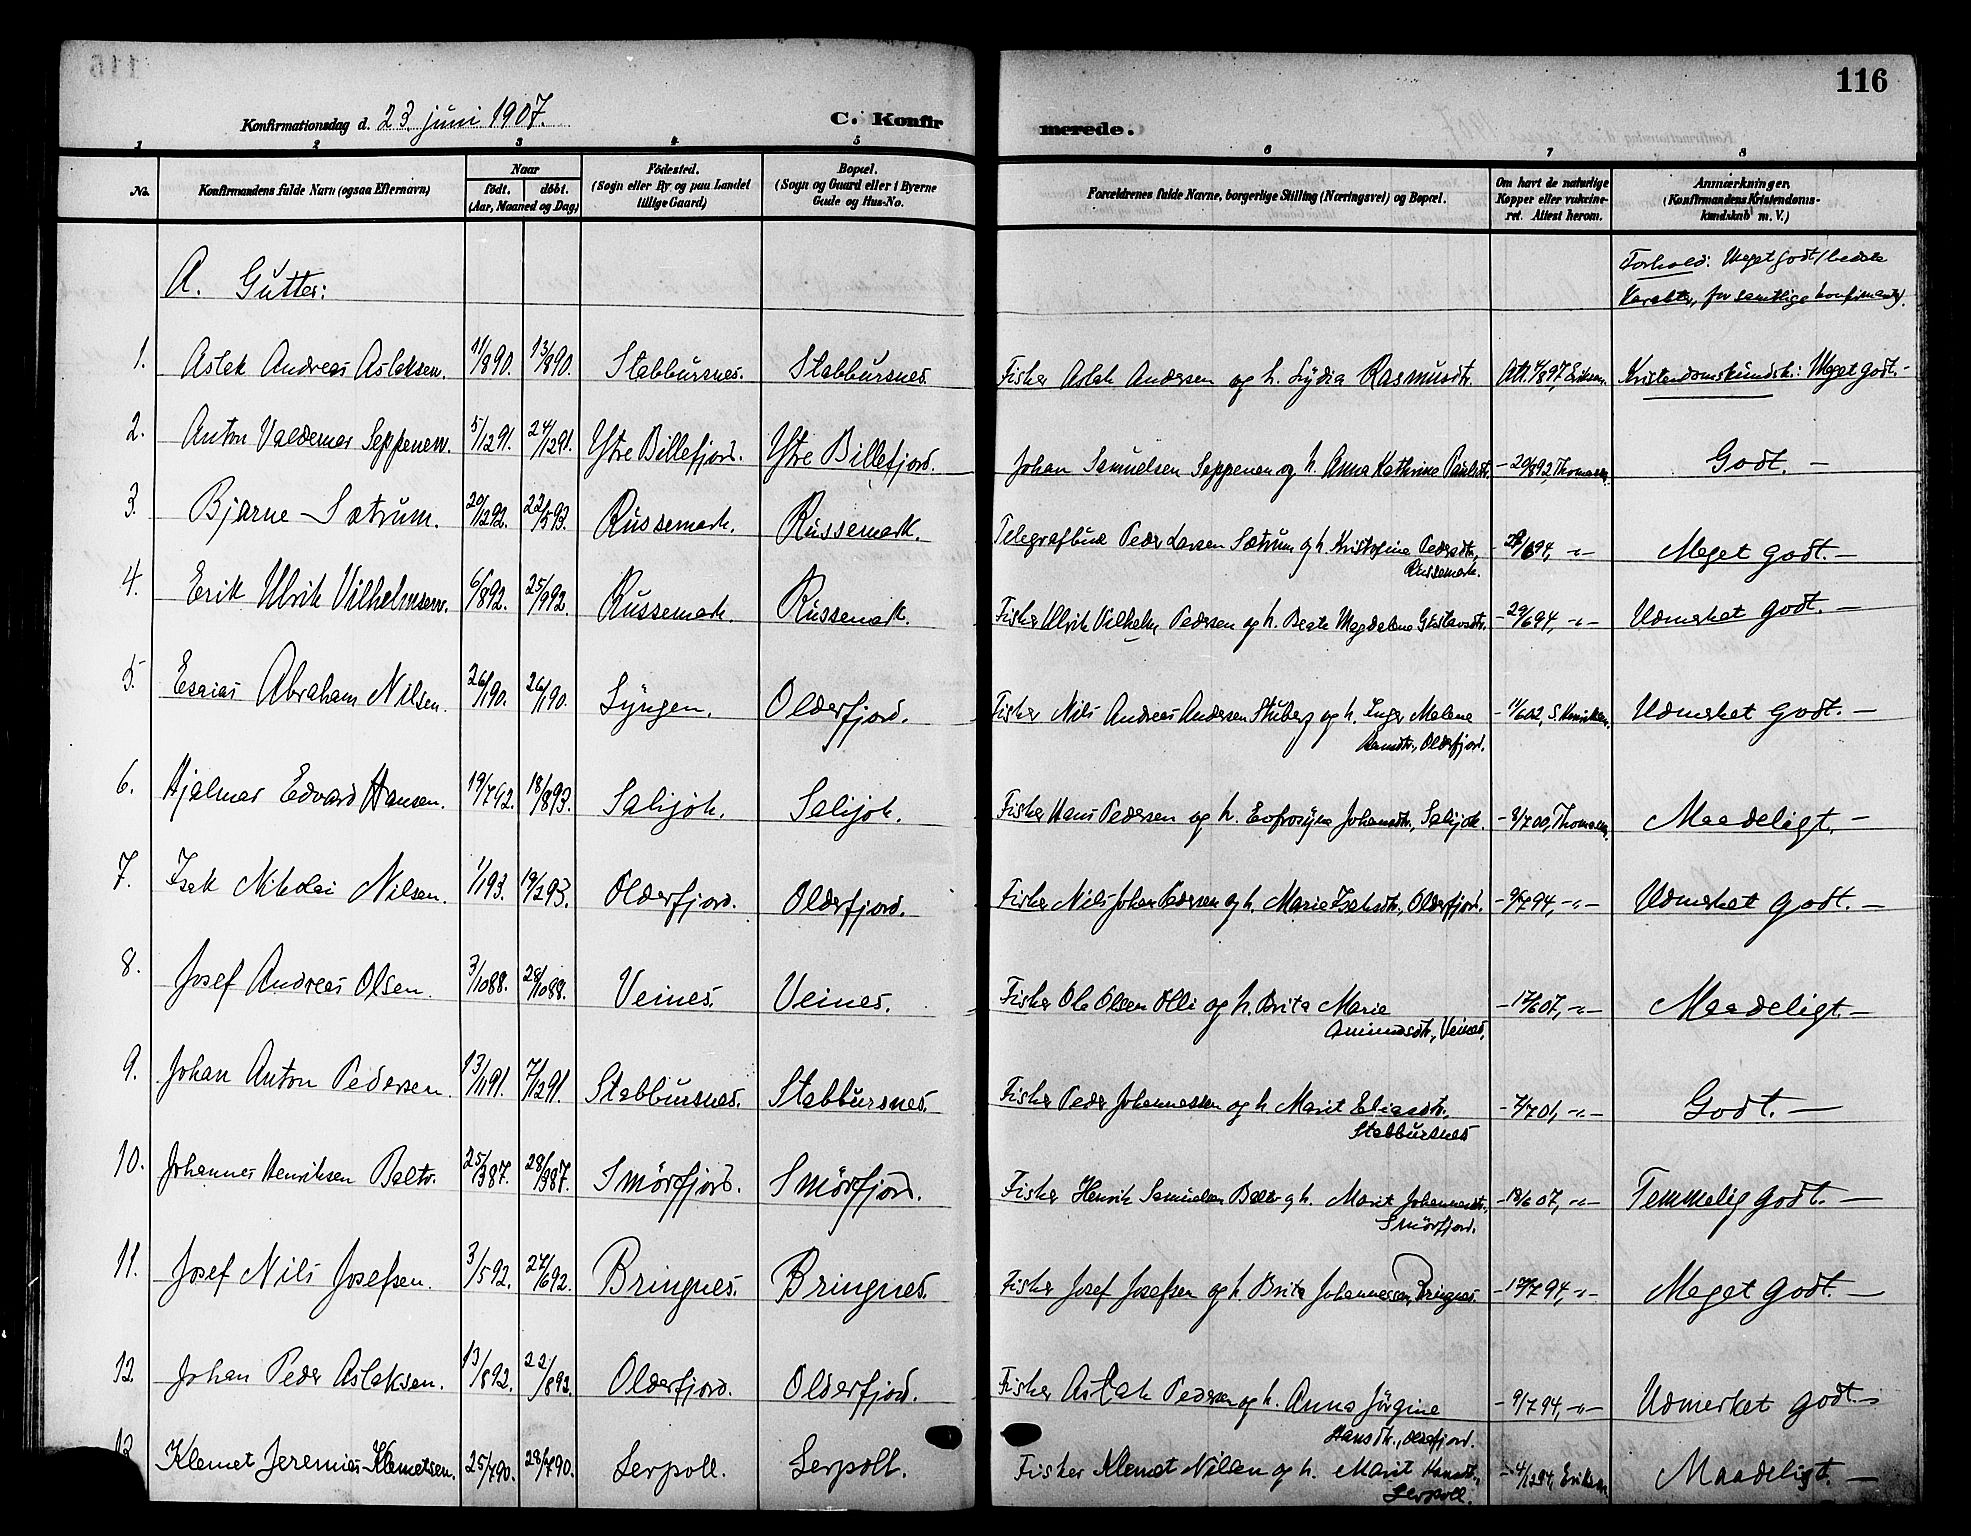 116
Konfirmationsdag d. 23 juni 1907. C. Konfirmerede.
1 2 3 4 5 6 7 8
No. Konfirmandens fulde Navn (ogsaa Efternavn) Naar født. døbt. (Aar, Maaned og Dag) Fødested. (Sogn eller By og paa Landet tillige Gaard) Bopæl. (Sogn og Gaard eller i Byerne Gade og Hus-No.) Forældrenes fulde Navne, borgerlige Stilling (Næringsvei) og Bopæl. Om havt de naturlige Kopper eller vakcineret. Attest herom. Anmærkninger. (Konfirmandens Kristendomskundskab m. V.)
A. Gutter: Forhold: Meget godt (bedste
Karakter, for samtlige konfirmanter).
1. Aslak Andreas Aslaksen. 11/8 90. 13/8 90. Stabbursnes. Stabbursnes. Fisker Aslak Andersen og h. Lydia Rasmusdtr. Att. 4/8 97, Eriksen. Kristendomskundsk.: Meget godt. –
2. Anton Valdemar Seppenen. 5/12 91. 24/12 91. Ytre Billefjord. Ytre Billefjord. Johan Samuelsen Seppenen og h. Anna Kathrine Paulsdtr. – 20/8 92, Thomassen. Godt. –
3. Bjarne Sætrum. 20/12 92. 22/5 93. Russemark. Russemark. Telegrafbud Peder Larsen Sætrum og h. Kristofine Pedersdtr., – 28/6 94, -"- Meget godt. –
Russemark.
4. Erik Ulrik Vilhelmsen. 6/8 92. 25/9 92. Russemark. Russemark. Fisker Ulrik Vilhelm Pedersen og h. Beate Magdalene Gustavsdtr. – 29/6 94, -"- Udmerket godt. –
5. Esaias Abraham Nilsen. 26/1 90. 26/1 90. Lyngen. Olderfjord. Fisker Nils Andreas Andersen Stuberg og h. Inger Malene – 11/6 02, S. Henriksen. Udmerket godt. –
Hansdtr., Olderfjord.
6. Hjalmar Edvard Hansen. 19/7 92. 18/8 93. Salijok. Salijok. Fisker Hans Pedersen og h. Eofrosyne Johansdtr., Salijok. – 9/7 00, Thomassen. Maadeligt. –
7. Isak Nikolai Nilsen. 1/1 93. 19/2 93. Olderfjord. Olderfjord. Fisker Nils Johan Pedersen og h. Marie Isaksdtr., Olderfjord. – 9/7 94, -"- Udmerket godt. –
8. Josef Andreas Olsen. 3/10 88. 28/10 88. Veines. Veines. Fisker Ole Olsen Olli og h. Brita Marie – 17/6 07, -"- Maadeligt –
Amundsdtr., Veines.
9. Johan Anton Pedersen. 13/11 91. 7/12 91. Stabbursnes. Stabbursnes. Fisker Peder Johannessen og h. Marit Eliasdtr. – 7/7 01, -"- Godt. –
Stabbursnes
10. Johannes Henriksen Balto. 25/3 87. 28/3 87. Smörfjord. Smörfjord. Fisker Henrik Samuelsen Balto og h. Marit Johannesdtr. – 18/6 07, -"- Temmelig godt. –
Smörfjord.
11. Josef Nils Josefsen. 3/5 92. 27/6 92. Bringnes. Bringnes. Fisker Josef Josefsen og h. Brita Johannessen, Bringnes. – 12/7 94, -"- Meget godt. –
12. Johan Peder Aslaksen. 13/8 92. 22/8 92. Olderfjord. Olderfjord. Fisker Aslak Pedersen og h. Anna Jörgine – 9/7 94, -"- Udmerket godt. –
Hansdtr., Olderfjord.
13 Klemet Jeremias Klemetsen. 25/7 90. 28/7 90. Lerpoll. Lerpoll. Fisker Klemet Nilsen og h. Marit Hansdtr., – 4/12 94, Eriksen. Maadeligt. –
Lerpoll.